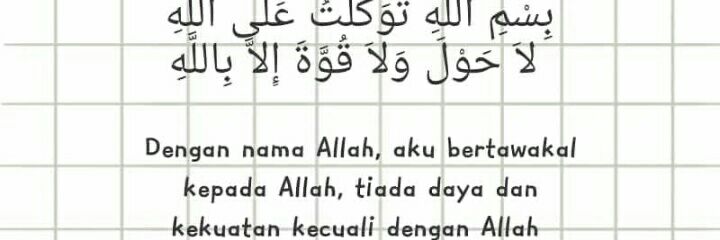 بِسْمِ اللَّهِ تَوَكَّلْتُ عَلَى اللَّهِ
لاَ حَوْلَ وَلاَ قُوَّةَ إِلاَّ بِاللَّهِ
Dengan nama Allah, aku bertawakal
kepada Allah, tiada daya dan
kekuatan kecuali dengan Allah